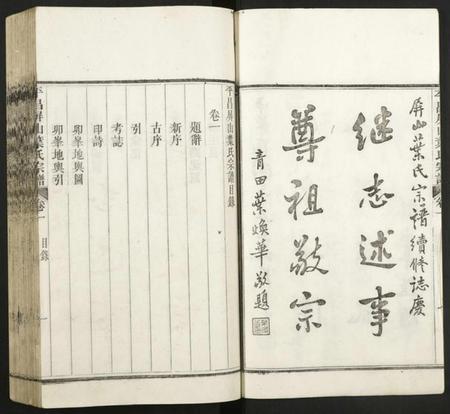 屏山葉氏宗譜續修誌慶
繼志述事
尊祖敬宗
青田葉煥華敬題
平昌屏山葉氏宗譜目錄
卷一
題辭
新序
古序
引
考誌
印詩
卯峯地輿圖
卯峯地輿引
平昌屏山葉氏宗譜
卷一
目錄